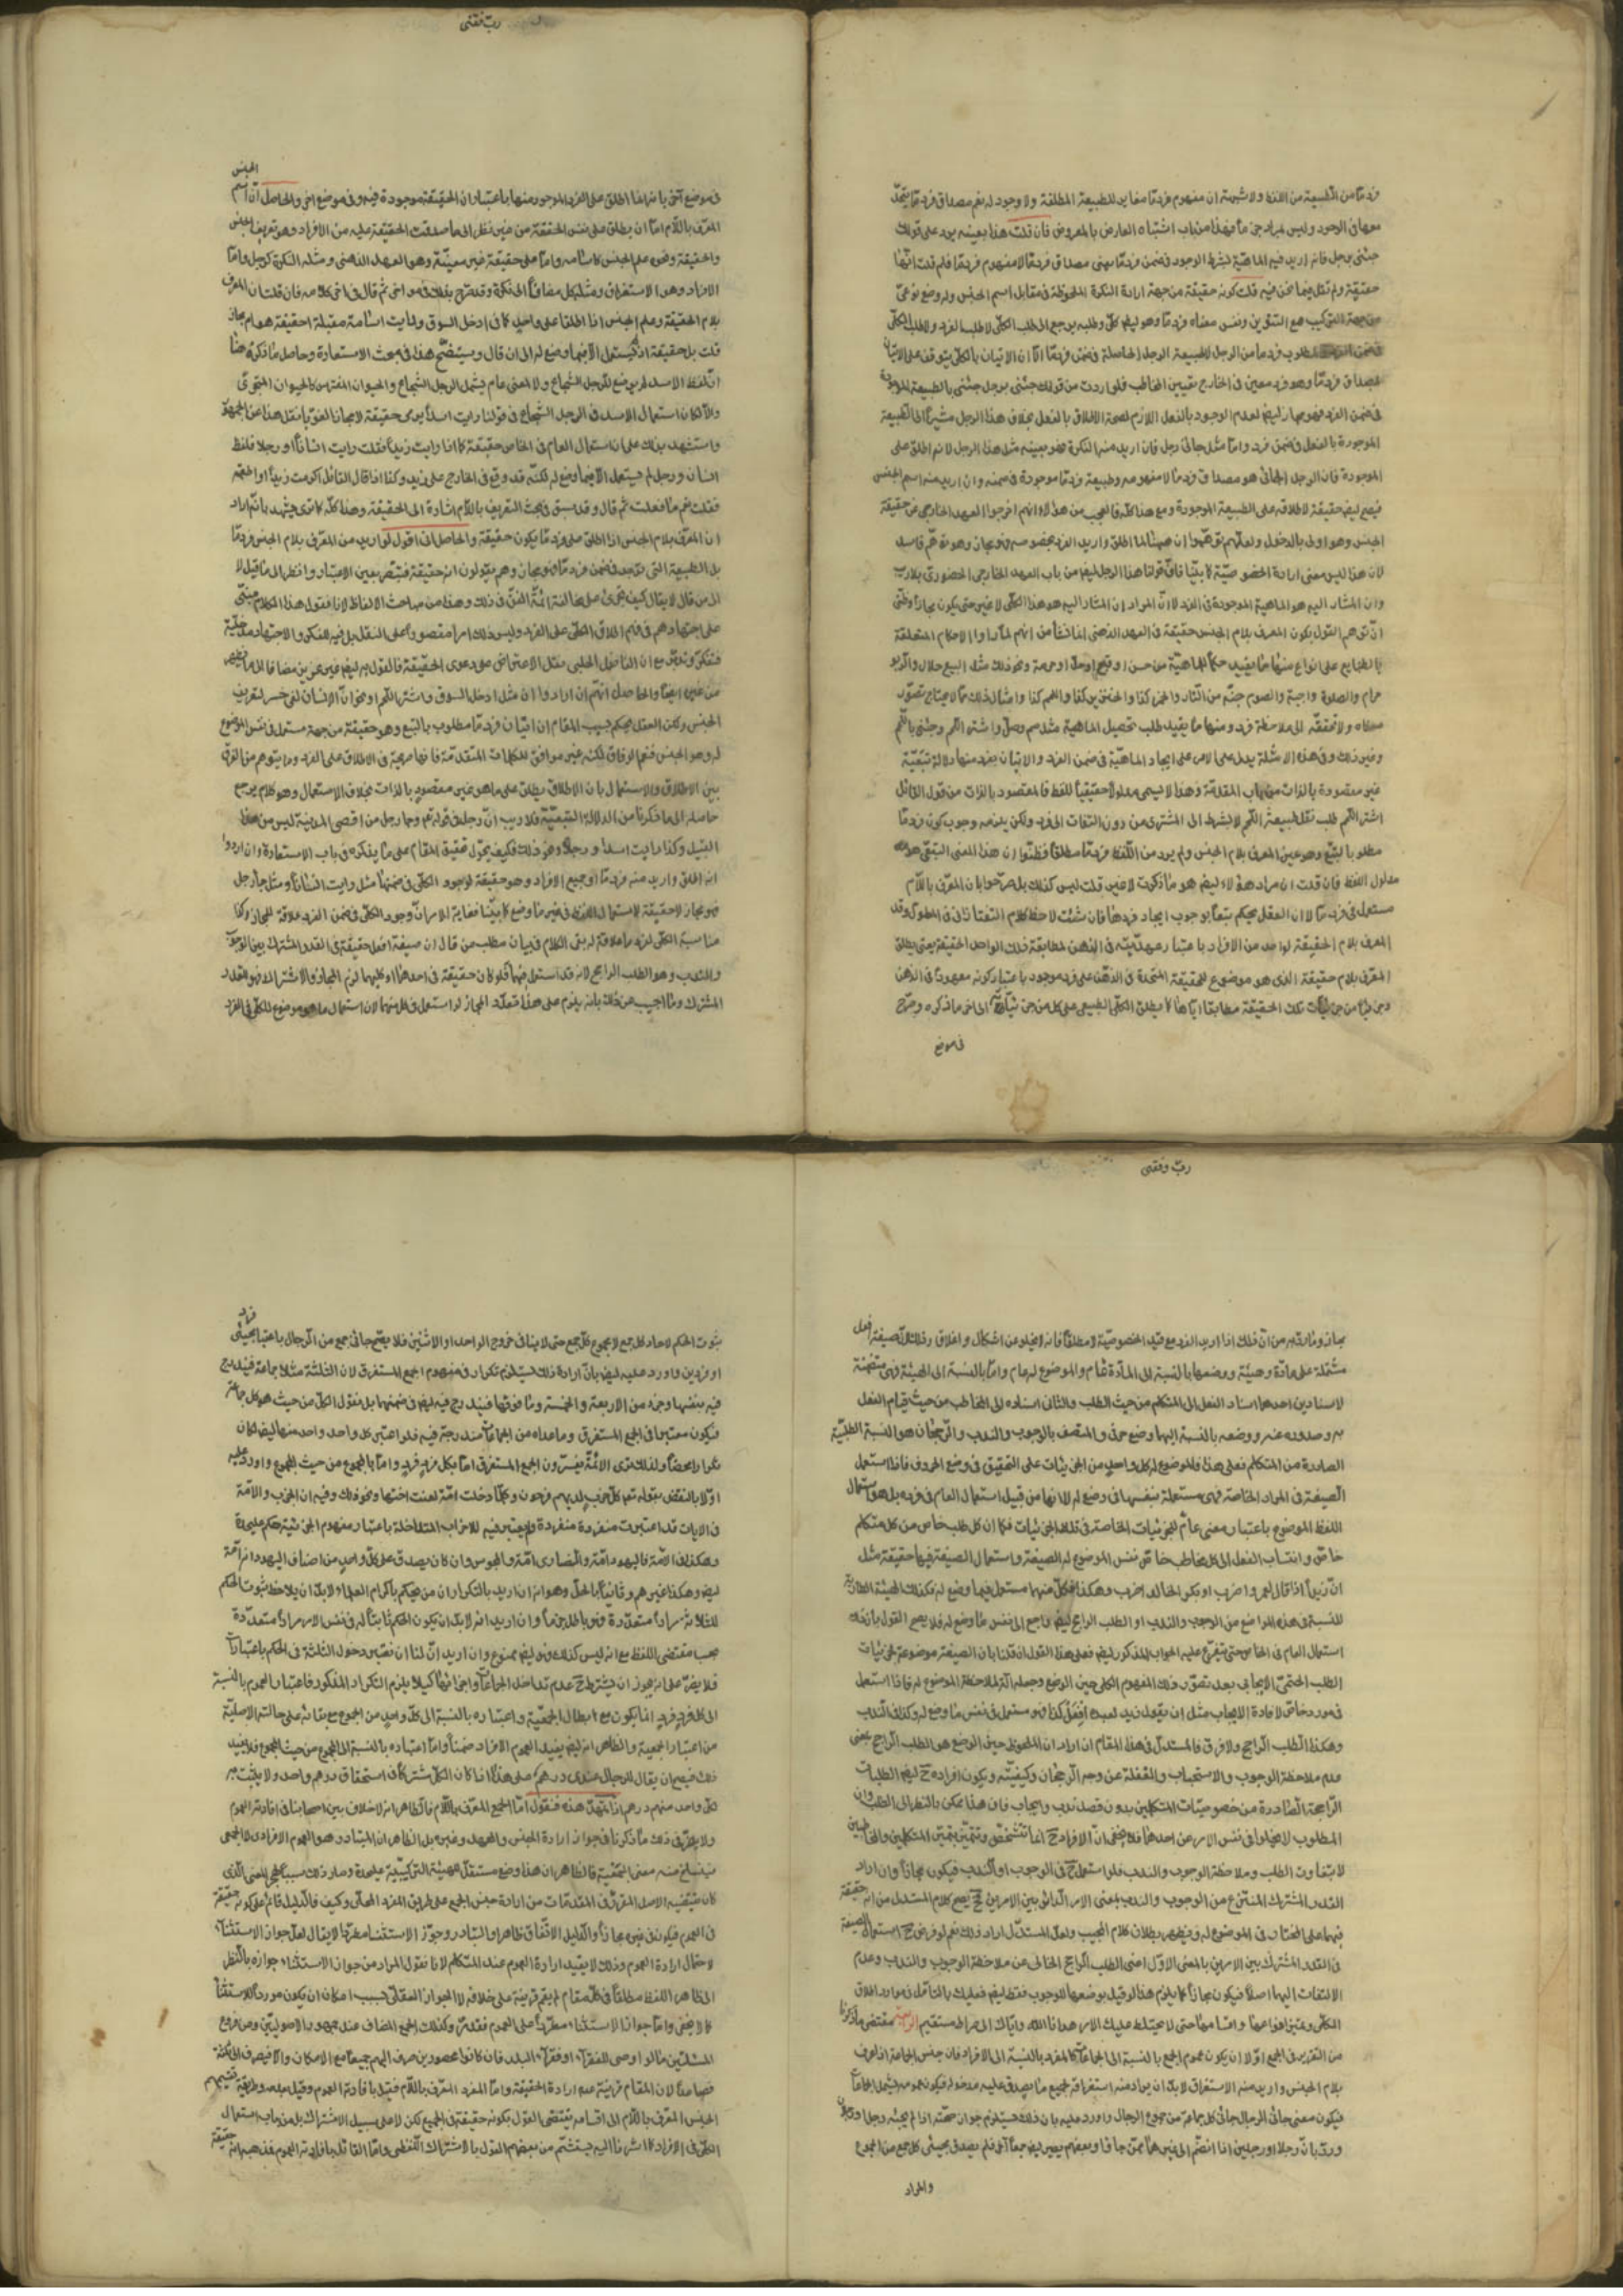 فرد ما من الطبيعة من اللفظ ولا شبهة ان مفهوم فرد ما مغاير للطبيعة المطلقة ولا وجود له نعم مصداق فرد ما يتحد
معها في الوجود وليس بمراد جزما فهذا من باب اشتباه العارض بالمعروض فان قلت هذا بعينه يرد على قولك
جئني برجل فانه اريد فيه الماهية بشرط الوجود في ضمن فرد ما يعني مصداق فرد ما لا مفهوم فرد ما فلم قلت انها
حقيقة ولم تقل فيما نحن فيه قلت كونه حقيقة من جهة ارادة النكرة الملحوظة في مقابل اسم الجنس وله وضع نوعي
من جهة التركيب مع التنوين ونفس معناه فرد ما وهو ايضا كلي وطلبه يرجع الى طلب الكلي لا طلب الفرد ولا طلب الكلي
في ضمن الفرد فالمطلوب فرد ما من الرجل لا طبيعة الرجل الحاصلة في ضمن فرد ما الا ان الاتيان بالكلي يتوقف على الاتيان
بمصداق فرد ما وهو فرد معين في الخارج بتعيين المخاطب فلو اردت من قولك جئني برجل جئني بالطبيعة الموجودة
في ضمن الفرد فهو مجاز ايضا لعدم الوجود بالفعل اللازم لصحة الاطلاق بالفعل بخلاف هذا الرجل مشيرا الى الطبيعة
الموجودة بالفعل في ضمن فرد واما مثل جاءني رجل فان اريد منه النكرة فهو بعينه مثل هذا الرجل لانه اطلق على
الموجودة فان الرجل الجائي هو مصداق فرد ما لا مفهومه وطبيعة فرد ما موجودة في ضمنه وان اريد منه اسم الجنس
فيصح ايضا حقيقة لاطلاقه على الطبيعة الموجودة ومع هذا كله فالعجب من هؤلاء انهم اخرجوا العهد الخارجي عن حقيقة
الجنس وهو اولى بالدخول ولعلهم توهموا ان هيهنا لما اطلق واريد الفرد بخصوصه فهو مجاز وهو توهم فاسد
لان هذا ليس معنى ارادة الخصوصية كما بينا فان قولنا هذا الرجل ايضا من باب العهد الخارجي الحضوري بلا ريب
وان المشار اليه هو الماهية الموجودة في الفرد لا ان المراد ان المشار اليه هو هذا الكلي لا غير حتى يكون مجازا وظني
ان توهم القول بكون المعرف بلام الجنس حقيقة في العهد الذهني انما نشأ من انهم لما راوا الاحكام المتعلقة
بالطبايع على انواع منها ما يفيد حكما للماهية من حسن او قبح او حل او حرمة ونحو ذلك مثل البيع حلال والربو
حرام والصلوة واجبة والصوم جنة من النار والخمر كذا والخنزير كذا واللحم كذا وامثال ذلك مما لا يحتاج تصور
معناه ولا تحققه الى ملاحظة فرد ومنها ما يفيد طلب تحصيل الماهية مثل صم وصل واشتر اللحم وجئني باللحم
وغير ذلك وفي هذه الامثلة يدل على الامر على ايجاد الماهية في ضمن الفرد والاتيان بفرد منها دلالة تبعية
غير مقصودة بالذات من باب المقدمة وهذا لا يسمى مدلولا حقيقيا للفظ فالمقصود بالذات من قول القائل
اشتر اللحم طلب نقل طبيعة اللحم لا بشرط الى المشتري من دون التفات الى فرد ولكن يلزمه وجوب كون فرد ما
مطلوبا بالتبع وهو عين المعرف بلام الجنس ولم يرد من اللفظ فرد ما مطلقا فظنوا ان هذا المعنى التبعي هو
مدلول اللفظ فان قلت ان مراد هؤلاء ايضا هو ما ذكرت لا غير قلت ليس كذلك بل صرحوا بان المعرف باللام
مستعمل في فرد ما لا ان العقل يحكم تبعا بوجوب ايجاد فرد هذا فان شئت لاحظ كلام التفتازاني في المطول وقد
المعرف بلام الحقيقة لواحد من الافراد باعتبار عهديته في الذهن لمطابقة ذلك الواحد الحقيقة يعني يطلق
المعرف بلام حقيقة الذي هو موضوع للحقيقة المتحدة في الذهن على فرد موجود باعتبار كونه معهودا في الذهن
وجزئيا من جزئيات تلك الحقيقة مطابقا اياها كما يطلق الكلي الطبيعي على كل من جزئياته الى اخر ما ذكره وصرح
في موضع
الجنس
في موضع آخر بانه انما اطلق على الفرد الموجود منها باعتبار ان الحقيقة موجودة فيه وفي موضع اخر والحاصل ان اسم
المعرف باللام اما ان يطلق على نفس الحقيقة من غير نظر الى ما صدقت الحقيقة عليه من الافراد وهو تعريف الجنس
والحقيقة ونحوه علم الجنس كاسامه واما على حقيقة غير معينة وهو العهد الذهني ومثله النكرة كرجل واما
الافراد وهو الاستغراق ومثله كل مضافا الى نكرة وقد صرح بذلك في مواضع اخر ثم قال في اخر كلامه فان قلت ان المعرف
بلام الحقيقة وعلم الجنس اذا اطلقا على واحد كما في ادخل السوق ورايت اسامة مقبلة احقيقة هو ام مجاز
قلت بل حقيقة اذ لم يستعمل الا فيما وضع له الى ان قال وسيتضح هذا في بحث الاستعارة وحاصل ما ذكره هنا
ان لفظ الاسد لم يوضع للرجل الشجاع ولا لمعنى عام يشمل الرجل الشجاع والحيوان المفترس كالحيوان المجتري
والا لكان استعمال الاسد في الرجل الشجاع في قولنا رايت اسدا يرمي حقيقة لا مجازا لغويا نقل هذا عن الجمهور
واستشهد بذلك على ان استعمال العام في الخاص حقيقة كما اذا رايت زيدا فقلت رايت انسانا او رجلا فلفظ
انسان ورجل لم يستعمل الا فيما وضع له لكنه قد وقع في الخارج على زيد وكذا اذا قال القائل اكرمت زيدا واطعمته
فقلت نعم ما فعلت ثم قال وقد سبق في بحث التعريف باللام اشارة الى الحقيقة وهذا كله كما ترى يشهد بانه اراد
ان المعرف بلام الجنس اذا اطلق على فرد ما يكون حقيقة والحاصل اني اقول لو اريد من المعرف بلام الجنس فرد ما
بل الطبيعة التي توجد في ضمن فرد ما فهو مجاز وهم يقولون انه حقيقة فتبصر بعين الاعتبار وانظر الى ما قيل لا
الى من قال لا يقال كيف تجترئ على مخالفة ائمة الفن في ذلك وهذا من مباحث الالفاظ لانا نقول هذا الكلام مبتني
على اجتهادهم في فهم اطلاق الكلي على الفرد وليس ذلك امرا مقصورا على النقل بل فيه للفكر والاجتهاد مدخلية
فتفكر وتدبر مع ان الفاضل الجلبي نقل الاعتراض على دعوى الحقيقة فالقول به ايضا غير عزيز مضافا الى
من غيره ايضا والحاصل انهم ان ارادوا ان مثل ادخل السوق واشتر اللحم او نحو ان الانسان لفي خسر لتعريف
الجنس ولكن العقل يحكم بسبب المقام ان اتيان فرد ما مطلوب بالتبع وهو حقيقة من جهة مستعمل في نفس الموضوع
له وهو الجنس فنعم الوفاق لكنه غير موافق لكلمات المتقدمة فانها صريحة في الاطلاق على الفرد وما يتوهم من الفرق
بين الاطلاق والاستعمال بان الاطلاق يطلق على ما هو غير مقصود بالذات بخلاف الاستعمال وهو كلام يرجع
حاصله الى ما ذكرنا من الدلالة التبعية فلا ريب ان رجلا في قوله تعم وجاء رجل من اقصى المدينة ليس من هذا
القبيل وكذا رايت اسدا ورجلا ونحو ذلك فكيف يحول تحقيق المقام على ما يذكره في باب الاستعارة وان ارادوا
انه اطلق واريد منه فرد ما او جميع الافراد وهو حقيقة لوجود الكلي في ضمنها مثل رايت انسانا ومثل جاء رجل
فهو مجاز لا حقيقة لاستعمال اللفظ في غير ما وضع كما بينا فغاية الامر ان وجود الكلي في ضمن الفرد علاقة للمجاز وكذا
مناسبة الكلي لفرد ما علاقة له بقي الكلام في بيان مطلب من قال ان صيغة افعل حقيقة في القدر المشترك بين الوجوب
والندب وهو الطلب الراجح لانه قد استعمل فيهما فلو كان حقيقة في احدهما او كليهما لزم المجاز والاشتراك فهو للقدر
المشترك وما اجيب عن ذلك بانه يلزم على هذا تعدد المجاز لو استعمل في كل منهما لان استعمال ما هو موضوع للكلي في الفرد
مجاز وما رد به من ان ذلك اذا اريد الفرد مع قيد الخصوصية لا مطلقا فانه لا يخلو عن اشكال واغلاق وذلك لان صيغة افعل
مشتملة على مادة وهيئة ووضعها بالنسبة الى المادة عام والموضوع له عام واما بالنسبة الى الهيئة فهي متضمنة
لاسنادين احدهما اسناد الفعل الى المتكلم من حيث الطلب والثاني اسناده الى المخاطب من حيث قيام الفعل
به وصدوره عنه ووضعه بالنسبة اليها وضع حرفي والمتصف بالوجوب والندب والرجحان هو النسبة الطلبية
الصادرة من المتكلم فعلى هذا فالموضوع له كل واحد من الجزئيات على التحقيق في وضع الحروف فاذا استعمل
الصيغة في الموارد الخاصة فهي مستعملة بنفسها في وضع له لا انها من قبيل استعمال العام في فرده بل هو استعمال
اللفظ الموضوع باعتبار معنى عام للجزئيات الخاصة في تلك الجزئيات فكما ان كل طلب خاص من كل متكلم
خاص وانتساب الفعل الى كل مخاطب خاص نفس الموضوع له الصيغة واستعمال الصيغة فيها حقيقة مثل
ان زيدا اذا قال لعمرو اضرب او بكر لخالد اضرب وهكذا فكل منهما مستعمل فيما وضع له فكذلك الهيئة الطارية
للنسبة في هذه المواضع من الوجوب والندب او الطلب الراجح ايضا راجع الى نفس ما وضع له فلا يصح القول بان ذلك
استعمال العام في الخاص حتى يتفرع عليه الجواب المذكور ايضا فعلى هذا القول ان قلنا بان الصيغة موضوعة لجزئيات
الطلب الحتمي الايجابي بعد تصور ذلك المفهوم الكلي حين الوضع وجعله آلة لملاحظة الموضوع له فاذا استعمل
في مورد خاص لافادة الايجاب مثل ان يقول زيد لعبده افعل كذا فهو مستعمل في نفس ما وضع له وكذا في الندب
وهكذا الطلب الراجح ولا فرق فالمستدل في هذا المقام ان اراد ان الملحوظ حين الوضع هو الطلب الراجح بمعنى
عدم ملاحظة الوجوب والاستحباب والغفلة عن وجه الرجحان وكيفيته ويكون افراده ح ايضا الطلبات
الراجحة الصادرة من خصوصيات المتكلمين بدون قصد ندب وايجاب فان هذا ممكن بالنظر الى الطلب وان
المطلوب لا يخلو في نفس الامر عن احدهما فلا يخفى ان الافراد ح انما تتشخص وتتميز بتميز المتكلمين والمخاطبين
لا بتفاوت الطلب وملاحظة الوجوب والندب فلو استعمل ح في الوجوب او الندب فيكون مجازا وان اراد
القدر المشترك المنتزع من الوجوب والندب بمعنى الامر الدائر بين الامرين فح يصح كلام المستدل من انه حقيقة
فيهما على المختار في الموضوع له ويظهر بطلان كلام المجيب ولعل المستدل اراد ذلك نعم لو فرض ح استعمال الصيغة
في القدر المشترك بين الامرين بالمعنى الاول اعني الطلب الراجح الخالي عن ملاحظة الوجوب والندب وعدم
الالتفات اليهما اصلا فيكون مجازا كما يلزم هذا لو قيل بوضعها للوجوب فقط ايضا فعليك بالتامل في موارد اطلاق
الكلي وتميز انواعها واقسامها حتى لا يختلط عليك الامر هدانا الله واياك الى صراط مستقيم الرابعة مقتضى ما ذكرنا
من التقرير في الجمع اولا ان يكون عموم الجمع بالنسبة الى الجماعات كالمفرد بالنسبة الى الافراد فان جنس الجماعة اذا عرف
بلام الجنس واريد منه الاستغراق لا بد ان يراد منه استغراقه لجميع ما يصدق عليه مدخوله فيكون عمومه يشمل الجماعات
فيكون معنى جاءني الرجال جاءني كل جماعة من جموع الرجال واورد عليه بان ذلك يستلزم جواز صحته اذا لم يجئه رجل او رجلان
ورد بان رجلا او رجلين اذا انضم الى غيرهما ممن جاؤا وبعضهم يصير ايضا جمعا اخر فلم يصدق مجيئ كل جمع من الجموع
والمراد
فرد
ثبوت الحكم لآحاد كل جمع لا لمجموع كل جمع حتى لا ينافي خروج الواحد او الاثنين فلا يصح جاءني جمع من الرجال باعتبار مجيئ
او فردين واورد عليه ايضا بان ارادة ذلك يستلزم تكرارا في مفهوم الجمع المستغرق لان الثلثة مثلا جماعة فيندرج
فيه بنفسها وجزء من الاربعة والخمسة وما فوقها فيندرج فيه ايضا في ضمنها بل نقول الكل من حيث هو كل جماعة
فيكون معتبرا في الجمع المستغرق وما عداه من الجماعات مندرجة فيه فلو اعتبر كل واحد واحد منها ايضا لكان
تكرارا محضا ولذلك ترى الائمة يفسرون الجمع المستغرق اما بكل فرد فرد واما بالمجموع من حيث المجموع واورد عليه
اولا بالنقض بقوله تعم كل حزب بما لديهم فرحون وكلما دخلت امة لعنت اختها ونحو ذلك وفيه ان الحزب والامة
في الايات قد اعتبرت منفردة منفردة ولم يعتبر فيه للاحزاب المتداخلة باعتبار مفهوم الجزئية حكم عليحدة
وهكذا في الامة فاليهود امة والنصارى امة والمجوس وان كان يصدق على كل واحد من اصناف اليهود انه امة
ايضا وهكذا غيرهم وثانيا بالحل وهو انه ان اريد بالتكرار ان من يحكم باكرام العلماء لا بد ان يلاحظ ثبوت الحكم
للثلاثة مرارا متعددة فهو باطل جزما وان اريد انه لا بد ان يكون الحكم ثابتا له في نفس الامر مرارا متعددة
بحسب مقتضى اللفظ مع انه ليس كذلك فهو ايضا ممنوع وان اريد ان لنا ان نعتبر دخول الثلثة في الحكم باعتبارات
فلا يضر على انه يجوز ان يشترط ح عدم تداخل الجماعات واجزائها كيلا يلزم التكرار المذكور فاعتبار العموم بالنسبة
الى كل فرد فرد انما يكون مع ابطال الجمعية واعتباره بالنسبة الى كل واحد من الجموع مع بقائه على حالته الاصلية
من اعتبار الجمعية والظاهر انه ايضا يفيد العموم الافراد ضمنا واما اعتباره بالنسبة الى المجموع من حيث المجموع فلا يفيد
ذلك فيصح ان يقال للرجال عندي درهم على هذا اذا كان الكل مشتركا في استحقاق درهم واحد ولا يثبت به
لكل واحد منهم درهم اذا تمهد هذه فنقول اما الجمع المعرف باللام فالظاهر انه لا خلاف بين اصحابنا في افادته العموم
ولا يضر في ذلك ما ذكرنا في جواز ارادة الجنس والعهد وغيره بل الظاهر ان المتبادر هو العموم الافرادي لا الجمعي
فينسلخ منه معنى الجمعية فالظاهر ان هذا وضع مستقل للهيئة التركيبية عليحدة وصار ذلك سببا لهجر المعنى الذي
كان يقتضيه الاصل المقرر في المقدمات من ارادة جنس الجمع على طريق المفرد المحلى وكيف فالدليل قائم على كونه حقيقة
في العموم فيكون في غيره مجازا والدليل الاتفاق ظاهرا والتبادر وجواز الاستثناء مطردا لا يقال لعل جواز الاستثناء
لاحتمال ارادة العموم وذلك لا يفيد ارادة العموم عند المتكلم لانا نقول المراد من جواز الاستثناء جوازه بالنظر
الى ظاهر اللفظ مطلقا في كل مقام لم يقم قرينة على خلافه لا الجواز العقلي بسبب امكان ان يكون موردا للاستثناء
كما لا يخفى واما جواز الاستثناء مطردا على العموم فقد مر وكذلك الجمع المضاف عند جمهور الاصوليين ومن فروع
المسئلتين ما لو اوصى للفقراء او فقراء البلد فان كانوا محصورين صرف اليهم جميعا مع الامكان والا فيصرف الى ثلثة
فصاعدا لان المقام قرينة عدم ارادة الحقيقة واما المفرد المعرف باللام فقيل بافادته العموم وقيل بعدمه وطريقة تقسيمهم
الجنس المعرف باللام الى اقسامه يقتضي القول بكونه حقيقة في الجميع لكن لا على سبيل الاشتراك بل من باب استعمال
الكلي في الافراد كما اشرنا اليه ويستشم من بعضهم القول بالاشتراك اللفظي واما القائل بافادته العموم فمذهبه انه حقيقة